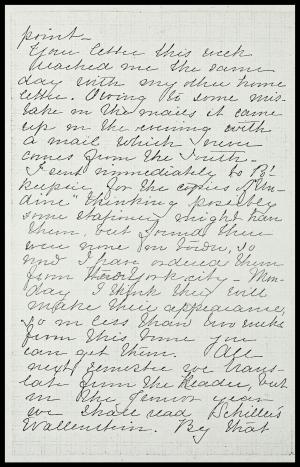 point—
Your letter this week
reached me the same
day with my other home
letter. Owing to some mis-
take in the mails it came
up in the evening with
a mail which never
comes from the South.
I sent immediately to Po'-
keepsie for the copies of "Un-
dine" thinking possibly
some stationer might have
them, but found there
were none in town, so
now I have ordered them
from New York city — Mon-
day I think they will
make their appearance,
so in less than two weeks
from this time you
can get them. All
next semester we trans-
late from the Reader, but
in the Junior year
we shall read Schiller's
Wallenstein. By that